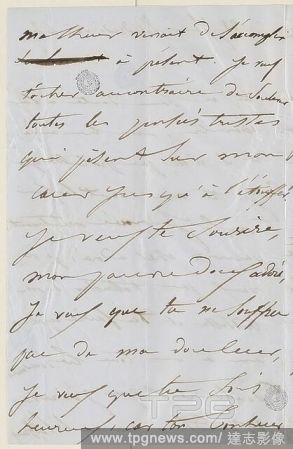 malheur venait de s'accomplir
à présent. Je veux
tâcher au contraire de
toutes les pensées tristes
qui pèsent sur mon
cœur presqu'à l'étouffer,
je veux te sourire,
mon pauvre doux adoré,
Je veux que tu ne souffres
pas de ma douleur,
je veux que tu sois
heureux, car ton bonheur
TPG
www.tpgnews.com / 達志影像